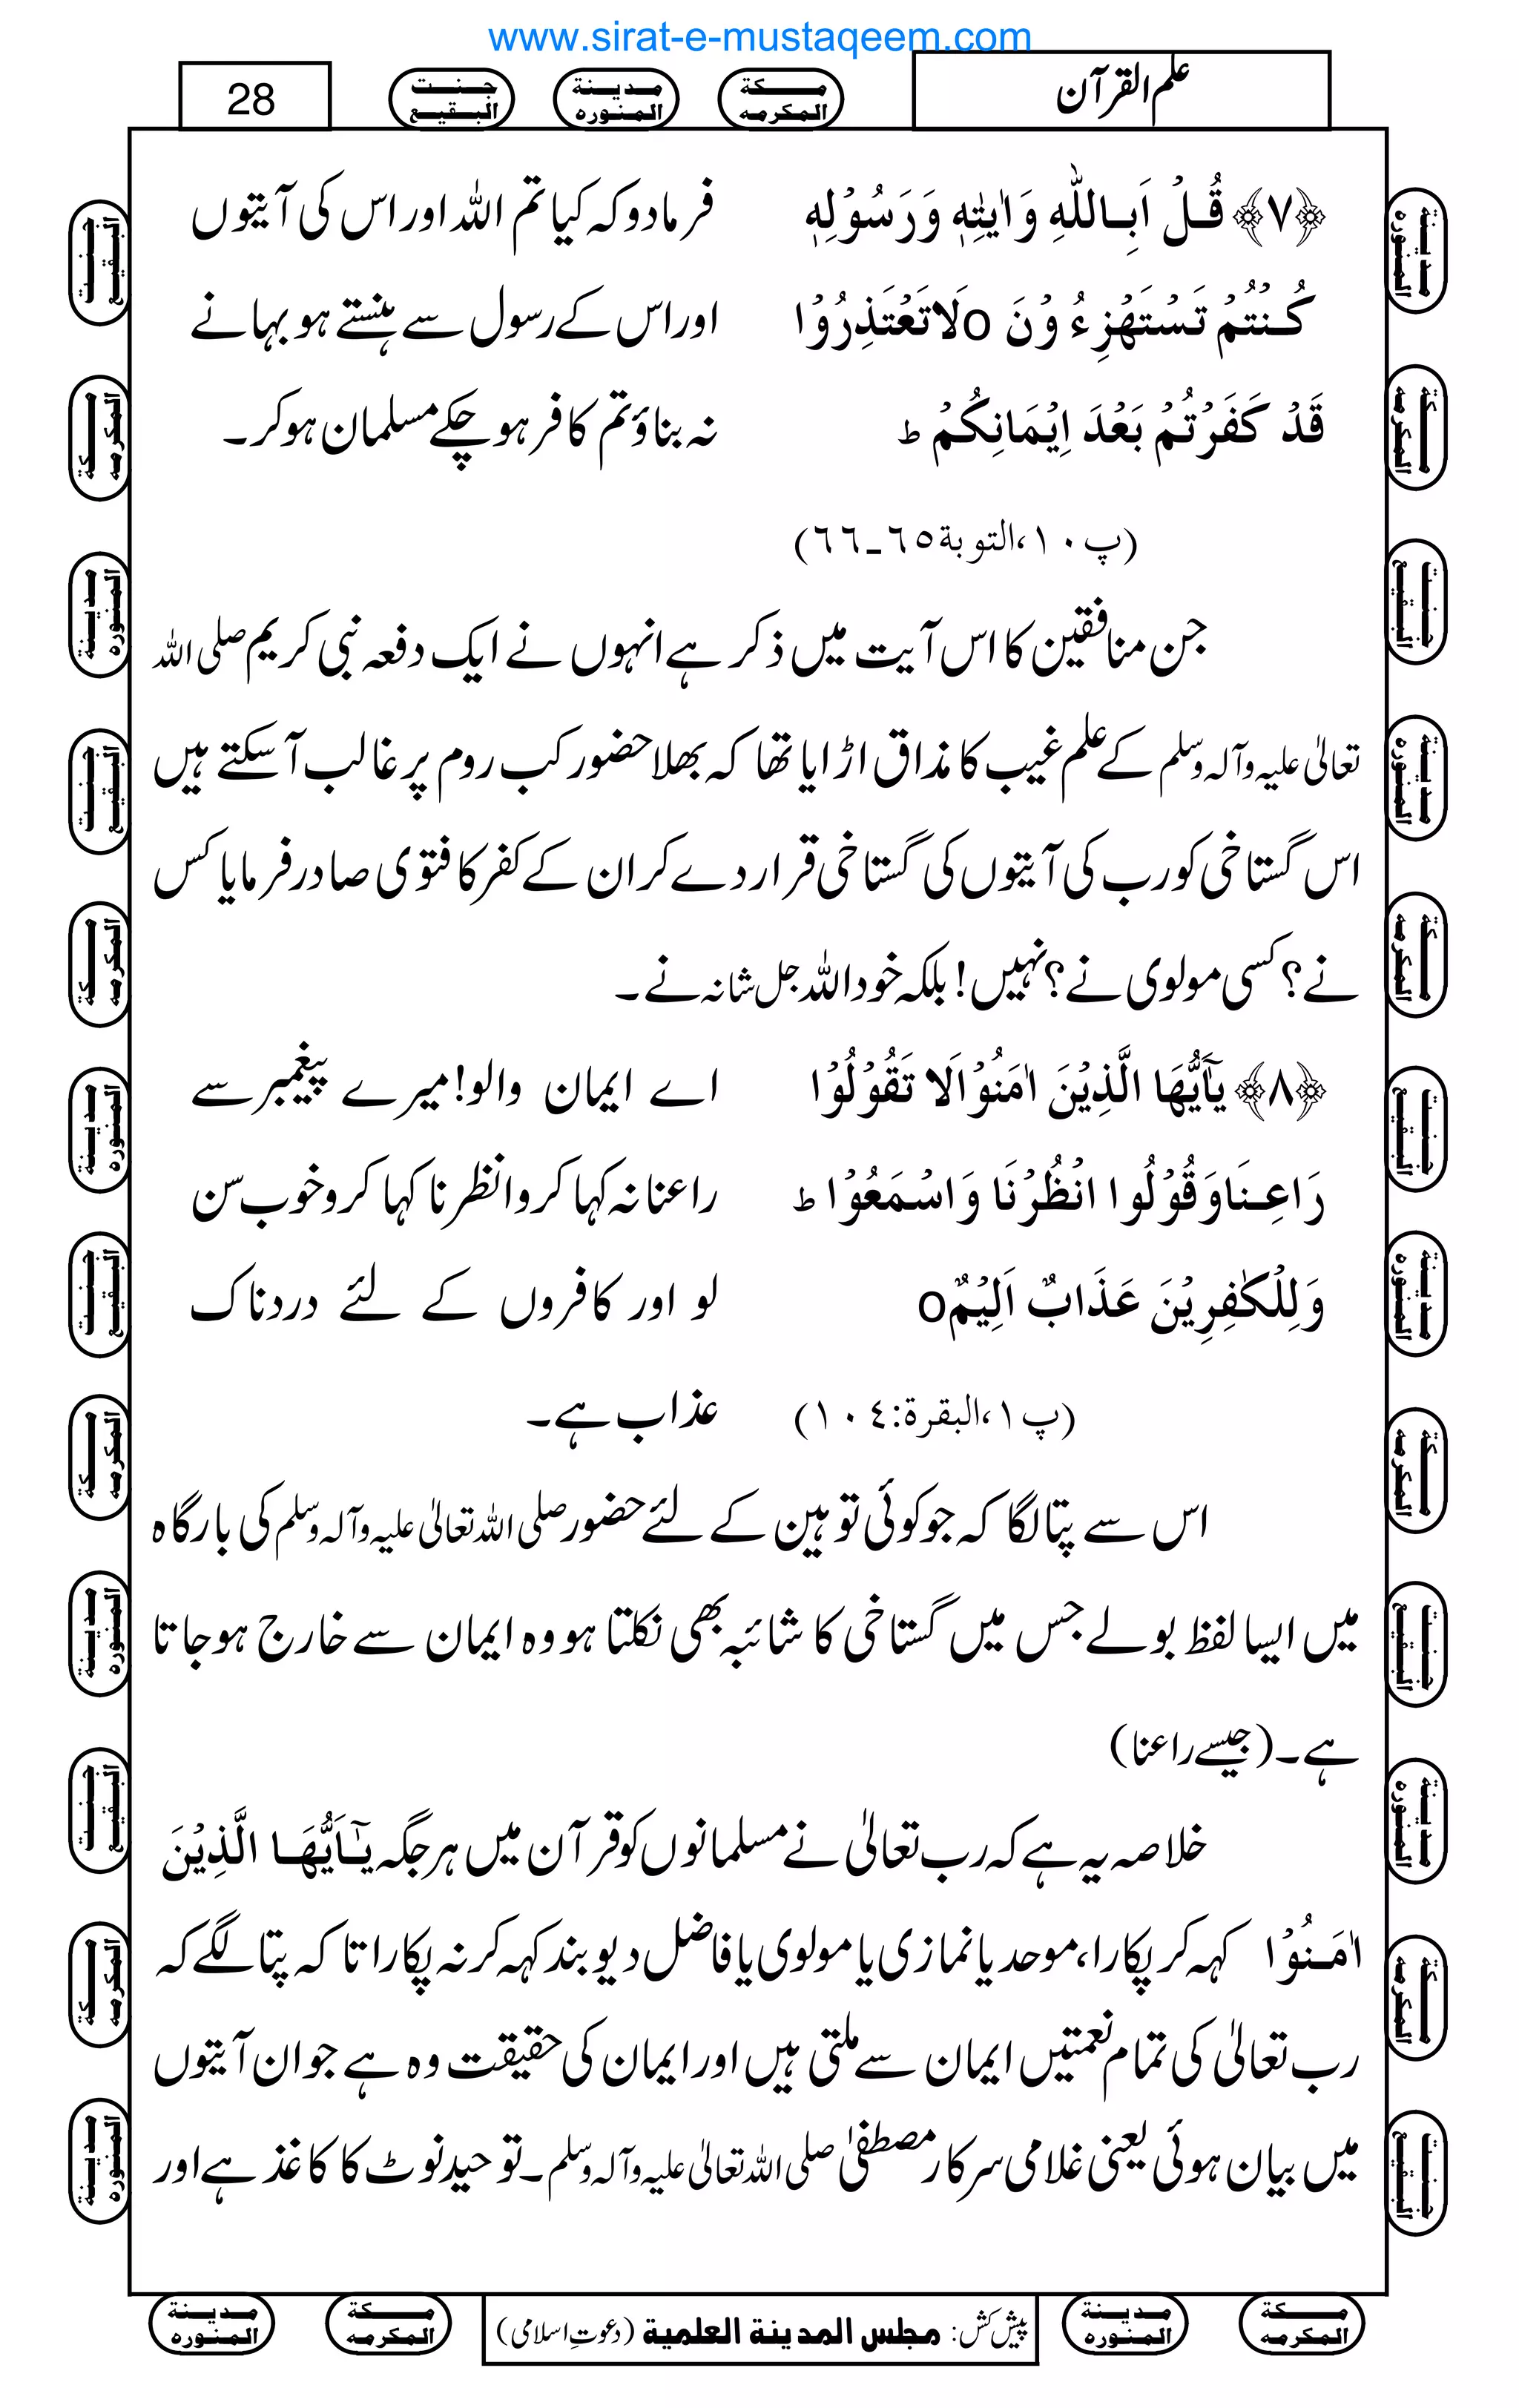 www.sirat-e-mustaqeem.com
علم القرآن
مكة المكرمه
مدينة المنوره
جنت البقيع
28
﴿۷﴾ قُلْ اَبِاللّٰهِ وَ اٰيٰتِهٖ وَ رَسُوْلِهٖ
فرمادو کہ کیا تم اللہ اور اس کی آیتوں
كُنْتُمْ تَسْتَهْزِءُ وْنَ o لَاتَعْتَذِرُوْا
اور اس کے رسول سے ہنستے ہو بہانے
قَدْ كَفَرْتُمْ بَعْدَ اِيْمَانِكُمْ ط
نہ بناؤ تم کافر ہوچکے مسلمان ہوکر۔
(پ۱۰،التوبة٦٥۔٦٦)
جن منافقین کا اس آیت میں ذکر ہے انہوں نے ایک دفعہ نبی کریم صلی اللہ
تعالیٰ علیہ وآلہ وسلم کے علم غیب کا مذاق اڑایا تھا کہ بھلا حضور کب روم پر غالب آسکتے ہیں
اس گستاخی کو رب کی آیتوں کی گستاخی قرار دے کر ان کے کفر کا فتوی صادر فرمایا کس
نے؟ کسی مولوی نے؟ نہیں! بلکہ خود اللہ جل شانہ نے۔
﴿۸﴾ يٰٓاَيُّهَا الَّذِيْنَ اٰمَنُوْا لَا تَقُوْلُوْا
اے ایمان والو! میرے پیغمبر سے
رَاعِنَا وَقُوْلُوا انْظُرْنَا وَ اسْمَعُوْا ط
راعنا نہ کہا کرو انظرنا کہا کرو خوب سن
وَلِلْكٰفِرِيْنَ عَذَابٌ اَلِيْمٌo
لو اور کافروں کے لئے دردناک
(پ۱،البقرة:۱۰٤)
عذاب ہے۔
اس سے پتا لگا کہ جو کوئی توہین کے لئے حضور صلی اللہ تعالیٰ علیہ وآلہ وسلم کی بارگاہ
میں ایسا لفظ بولے جس میں گستاخی کا شائبہ بھی نکلتا ہو وہ ایمان سے خارج ہوجاتا
ہے۔(جیسے راعنا)
خلاصہ یہ ہے کہ رب تعالیٰ نے مسلمانوں کو قرآن میں ہر جگہ يٰٓاَيُّهَا الَّذِيْنَ
اٰمَنُوْا کہہ کر پکارا، موحد یا نمازی یا مولوی یا فاضل دیوبند کہہ کر نہ پکارا تا کہ پتا لگے کہ
رب تعالیٰ کی تمام نعمتیں ایمان سے ملتی ہیں اور ایمان کی حقیقت وہ ہے جو ان آیتوں
میں بیان ہوئی یعنی غلامی سرکار مصطفیٰ صلی اللہ تعالیٰ علیہ وآلہ وسلم۔ تو حید نوٹ کا کاغذ ہے اور
مكة المكرمه
مدينة المنوره
پیش کش: مجلس المدينة العلمية (دعوتِ اسلامی)
مكة المكرمه
مدينة المنوره